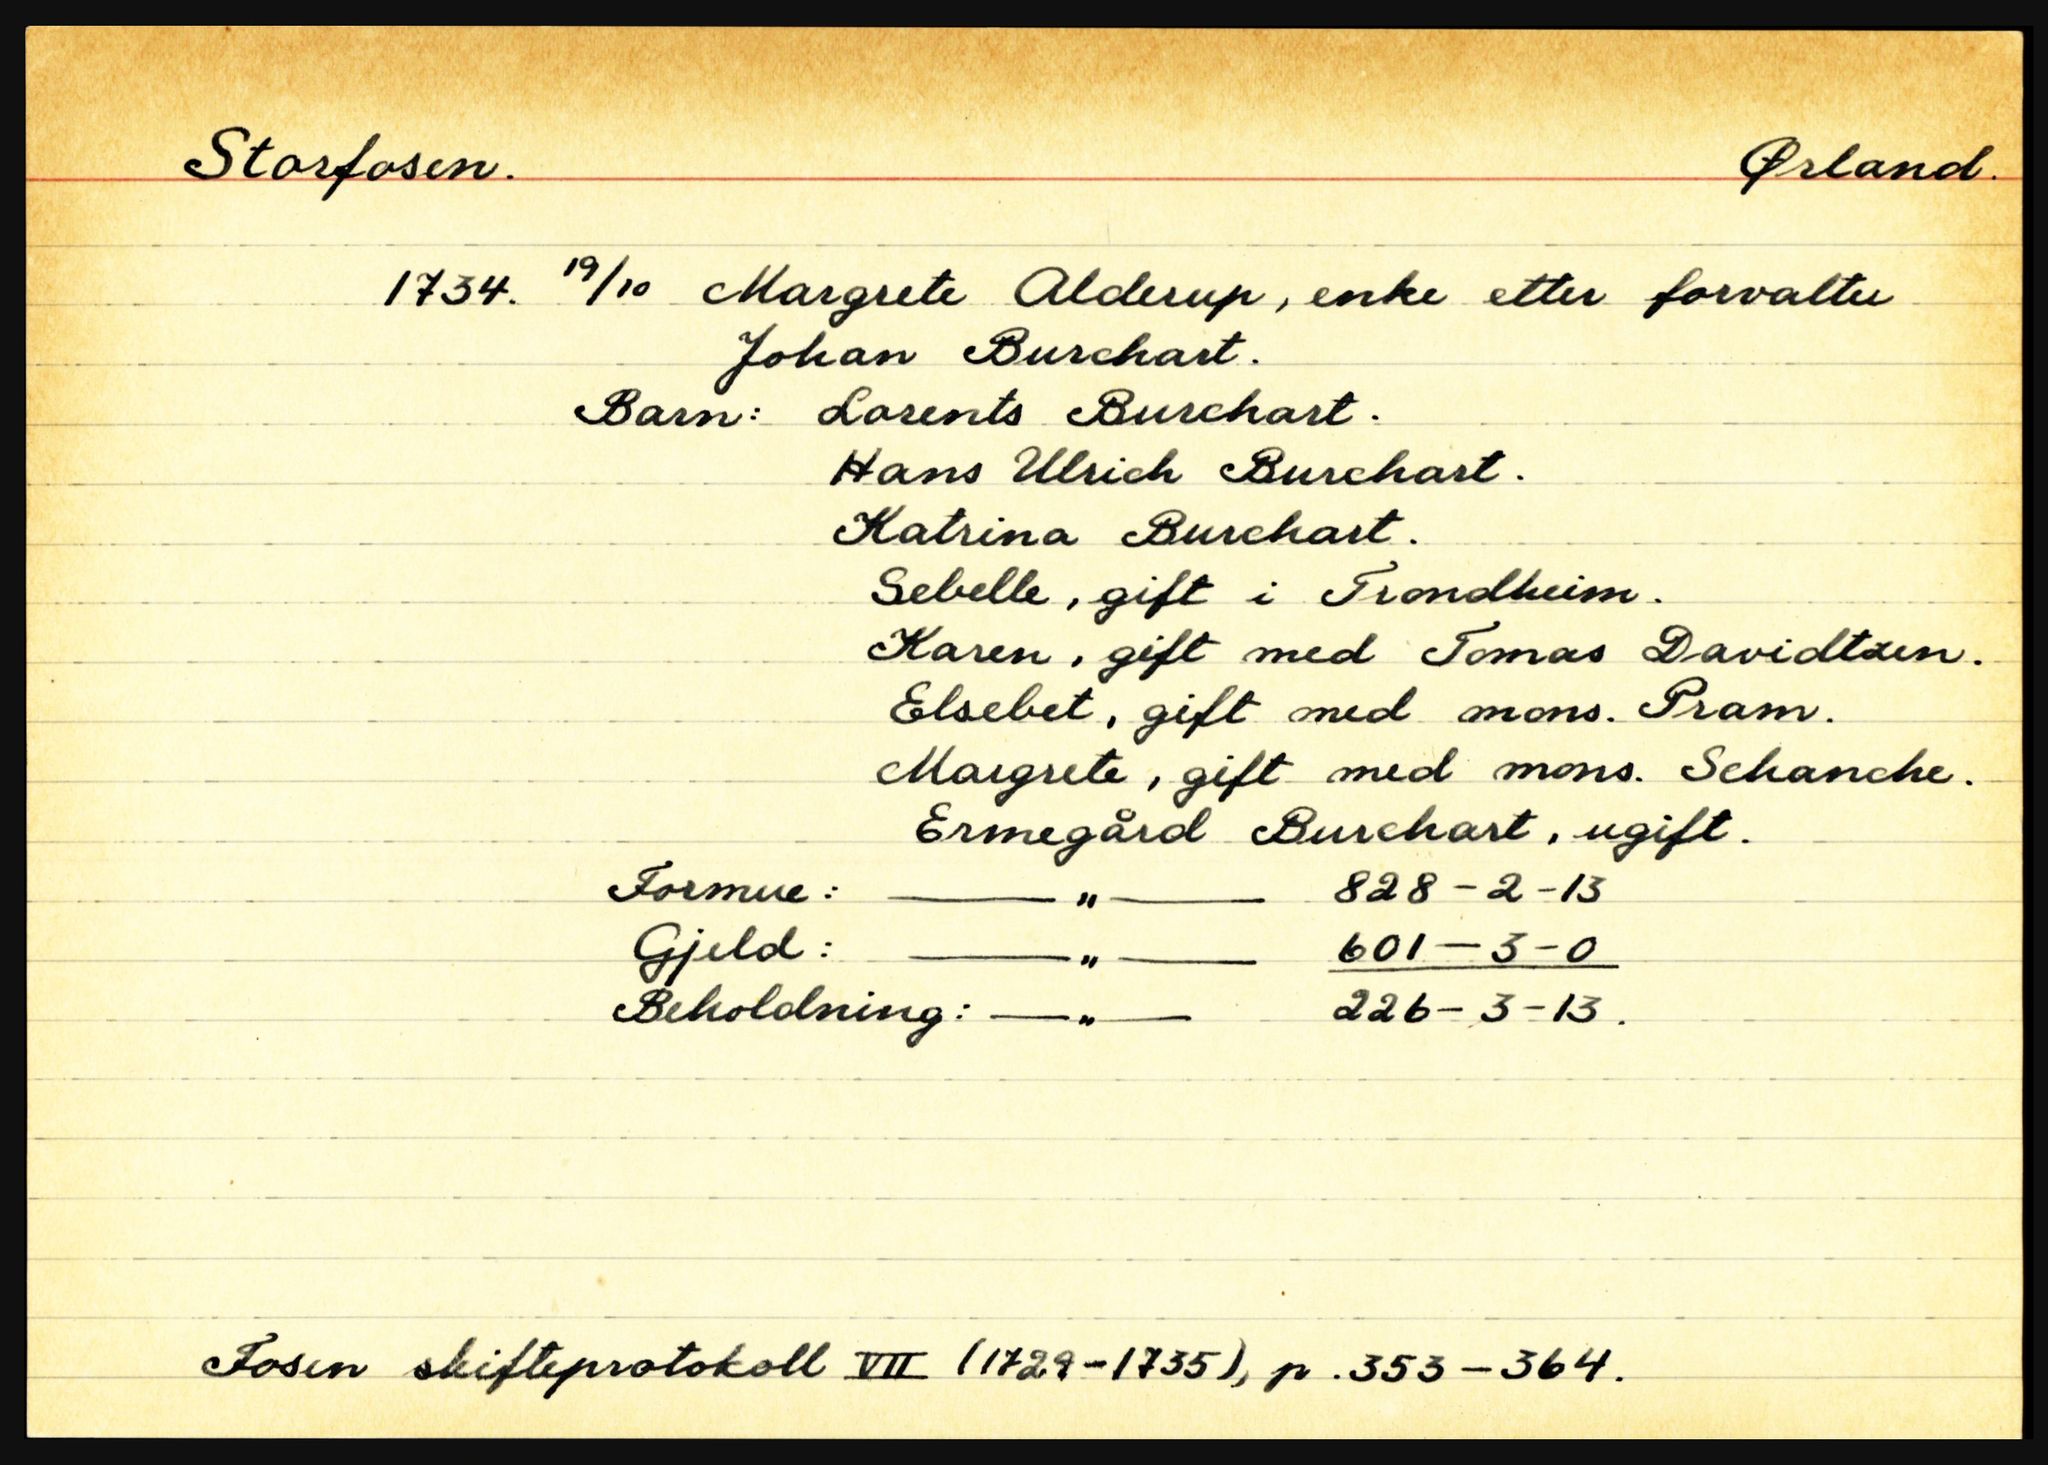 Storfosen. Ørland.
1734. 19/10 Margrete Alderup, enke etter forvalter
Johan Burchart.
Barn: Lorents Burchart.
Hans Ulrich Burchart.
Katrina Burchart.
Sebelle, gift i Trondheim.
Karen, gift med Tomas Davidtzen.
Elsebet, gift med mons. Pram.
Margrete, gift med mons. Schanche.
Ermegård Burchart, ugift.
Formue: — " — 828-2-13
Gjeld: — " — 601-3-0
Beholdning: — " — 226-3-13.
Fosen skifteprotokoll VII (1729-1735), p. 353-364.